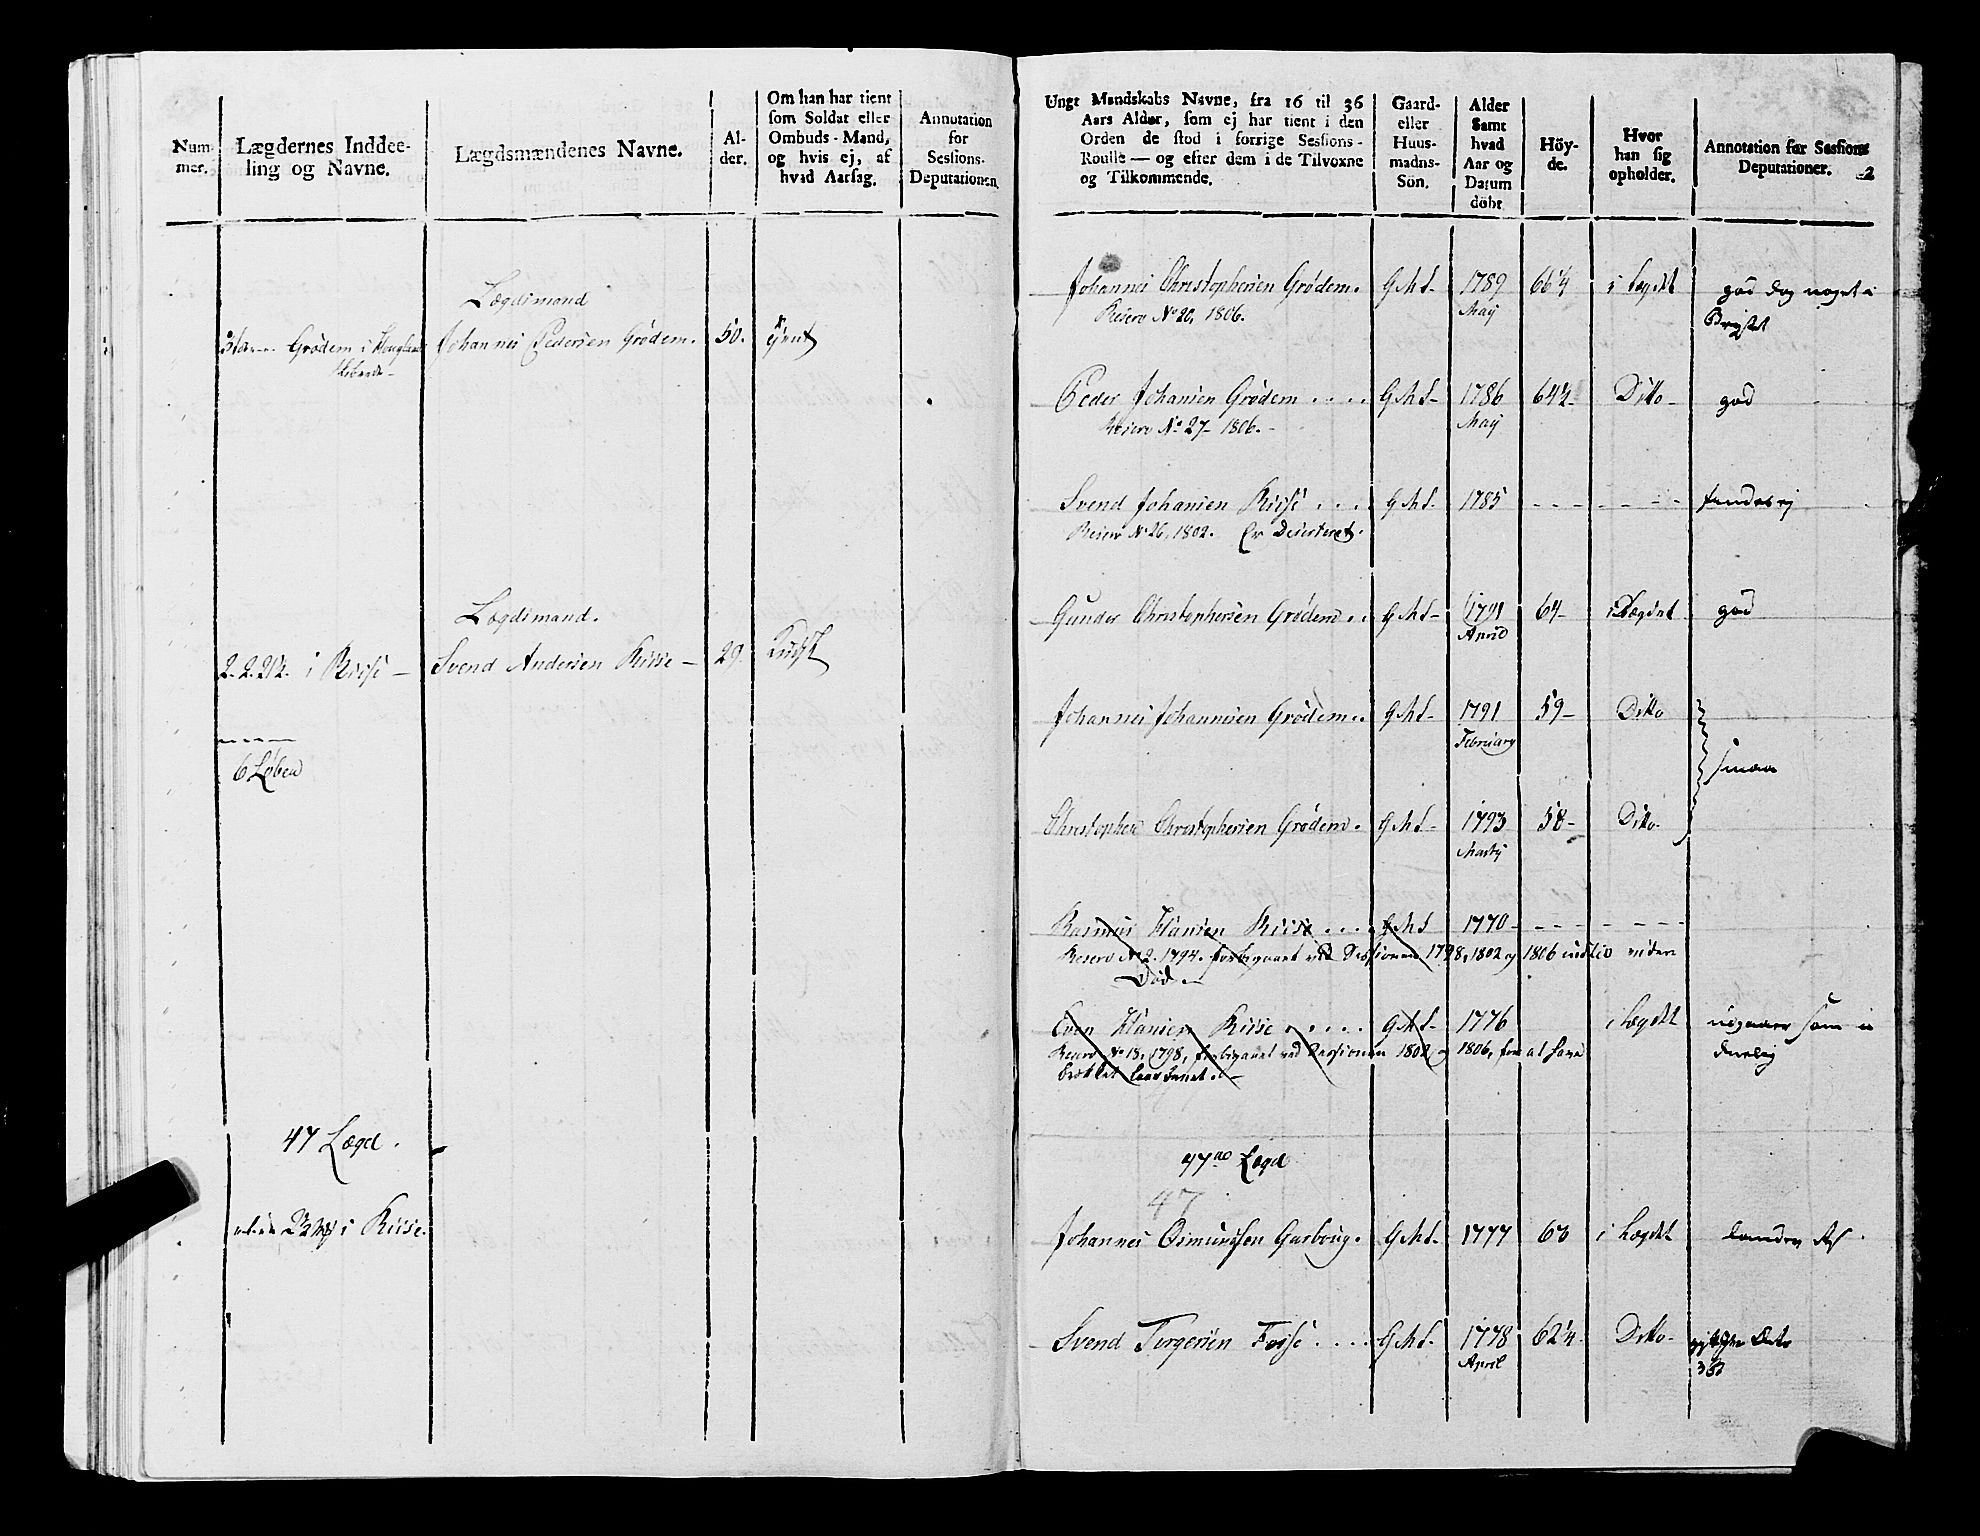 Num-
mer.
Lægdernes Inddee-
ling og Navne.
Lægdsmændenes Navne.
Al-
der.
Om han har tient
som Soldat eller
Ombuds-Mand,
og hvis ej, af
hvad Aarsag.
Annotation
for
Sessions-
Deputationen.
Lægdsmand
Grødem i
Johannes Pedersen Grødem. 50.
Lægdsmand.
2.2.2½. i Riise - Svend Andersen Riise - 29.
6 Løber
47 Lægd.
i Riise.
Ungt Mandskabs Navne, fra 16 til 36
Aars Alder, som ej har tient i den
Orden de stod i forrige Sessions-
Roulle — og efter dem i de Tilvoxne
og Tilkommende.
Gaard-
eller
Huus-
mands-
Sön.
Alder
Samt
hvad
Aar og
Datum
döbt
Höy-
de.
Hvor
han sig
opholder.
Annotation for Sessions
Deputationer.
Johannes Christophersen Grødem. G.M.S. 1789 66¼ i Lægdet god dog noget i
Reserv No 20, 1806. May Brystet
Peder Johansen Grødem .... G.M.S- 1786 64½ Ditto- god
Reserv No 27- 1806.- May
Svend Johansen Riise .... G.M.S. 1785 - - - - - - fandes ej
Reserv No 26, 1802. Er Deserteret.
Gunder Christophersen Grødem.. G.M.S- 1791 64- i Lægdet god
April
Johannes Johannesen Grødem.. G.M.S- 1791 59- Ditto
February
smaa
Christopher Christophersen Grødem. G.M.S- 1793 58- Ditto.
Marty
Rasmus Hansen Riise .... G.M.S 1770 - - - - - -
Reserv No 2. 1794. forbigaaet ved Sessionen 1798, 1802 og 1806 indtil videre
Død.-
Even Hansen Riise ..... G.M.S- 1776 i Lægdet udgaaer som u
Reserv No 18, 1798, forbigaaet ved Sessionen 1802 og 1806, for at have duelig
brækket Laarbenet.-
47de Lægd
47
Johannes Osmundsen Garborg. G.M.S. 1777 60 i Lægdet
Svend Torgersen Fosse .... G.M.S. 1778 62¼. Ditto-
April